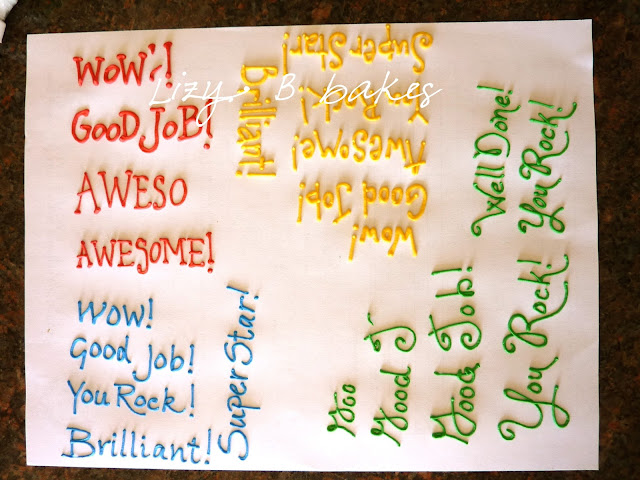 WOW!!
GOOD JOB!
AWESO
AWESOME!
Wow!
Good Job!
You Rock!
Brilliant!
Super Star!
Brilliant!
Super Star!
Awesome!
Good Job!
Wow!
Well Done!
You Rock!
Goo
Good J
Good Job!
You Rock!
Lizy B bakes